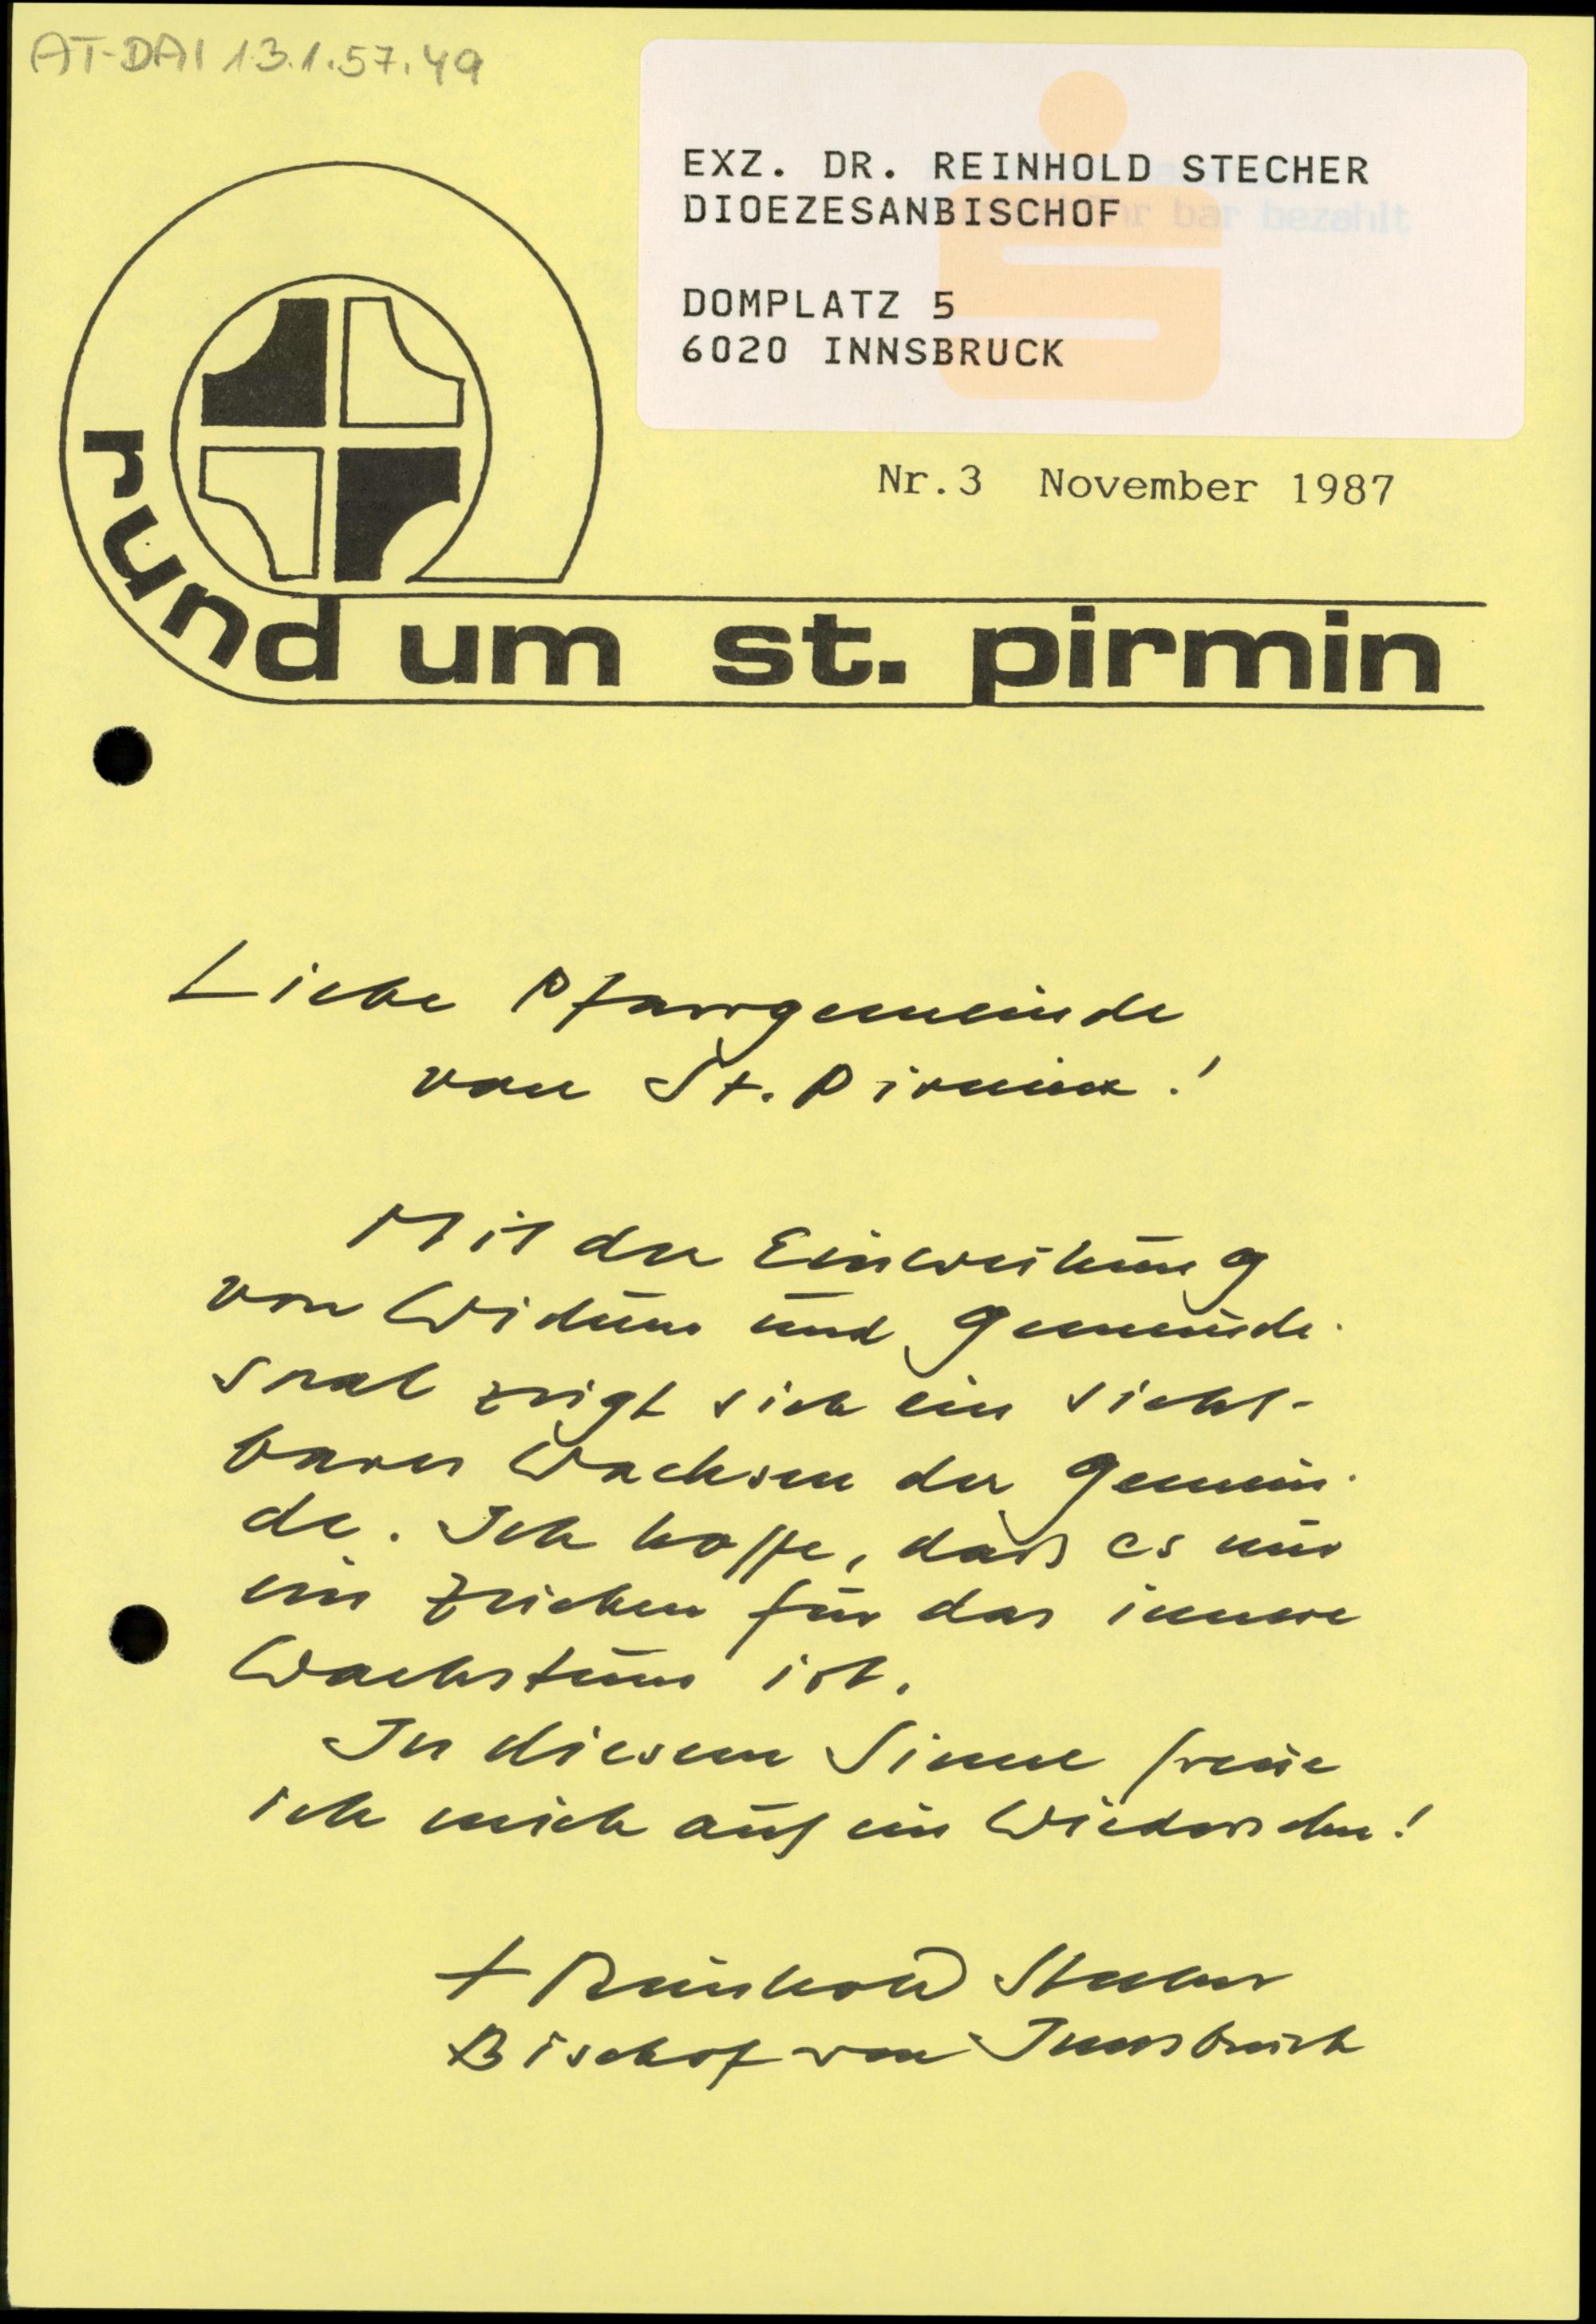 AT-DAI 13.1.57.49
EXZ. DR. REINHOLD STECHER
DIOEZESANBISCHOF
hr bar bezahlt
DOMPLATZ 5
6020 INNSBRUCK
Nr.3 November 1987
rund um st. pirmin
Liebe Pfarrgemeinde
von St. Pirmin!
Mit der Einweihung
von Widum und Gemeinde-
saal zeigt sich ein sicht-
bares Wachsen der Gemein-
de. Ich hoffe, daß es nur
ein Zeichen für das innere
Wachstum ist.
In diesem Sinne freue
ich mich auf ein Wiedersehen!
+ Reinhold Stecher
Bischof von Innsbruck